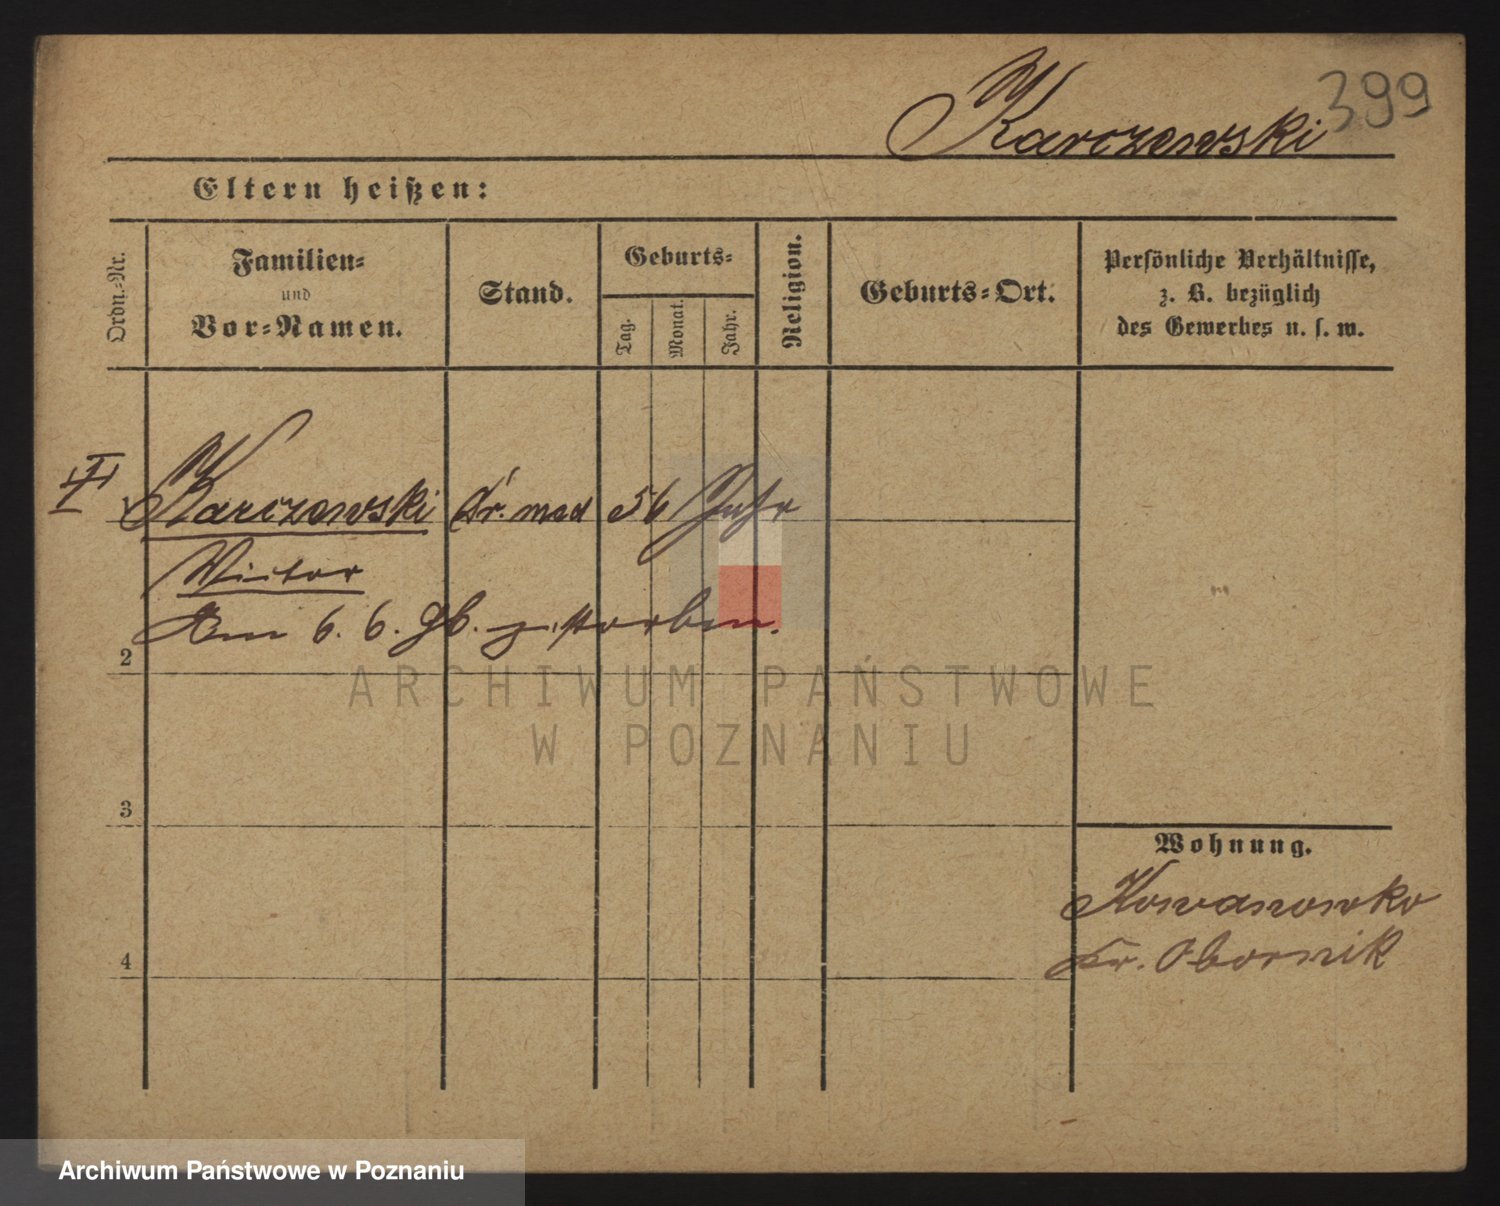 399
Karczewski
Eltern heißen:
Ordn.-Nr.
Familien-
und
Vor-Namen.
Stand.
Geburts-
Tag.
Monat.
Jahr.
Religion.
Geburts-Ort.
Persönliche Verhältnisse,
z. B. bezüglich
des Gewerbes u. s. w.
1 Karczewski Dr. med 56 Jahr
Victor
Am 6. 6. gestorben.
2
3
4
Wohnung.
Kowanowko
Kr. Obornik
ARCHIWUM PAŃSTWOWE
W POZNANIU
Archiwum Państwowe w Poznaniu